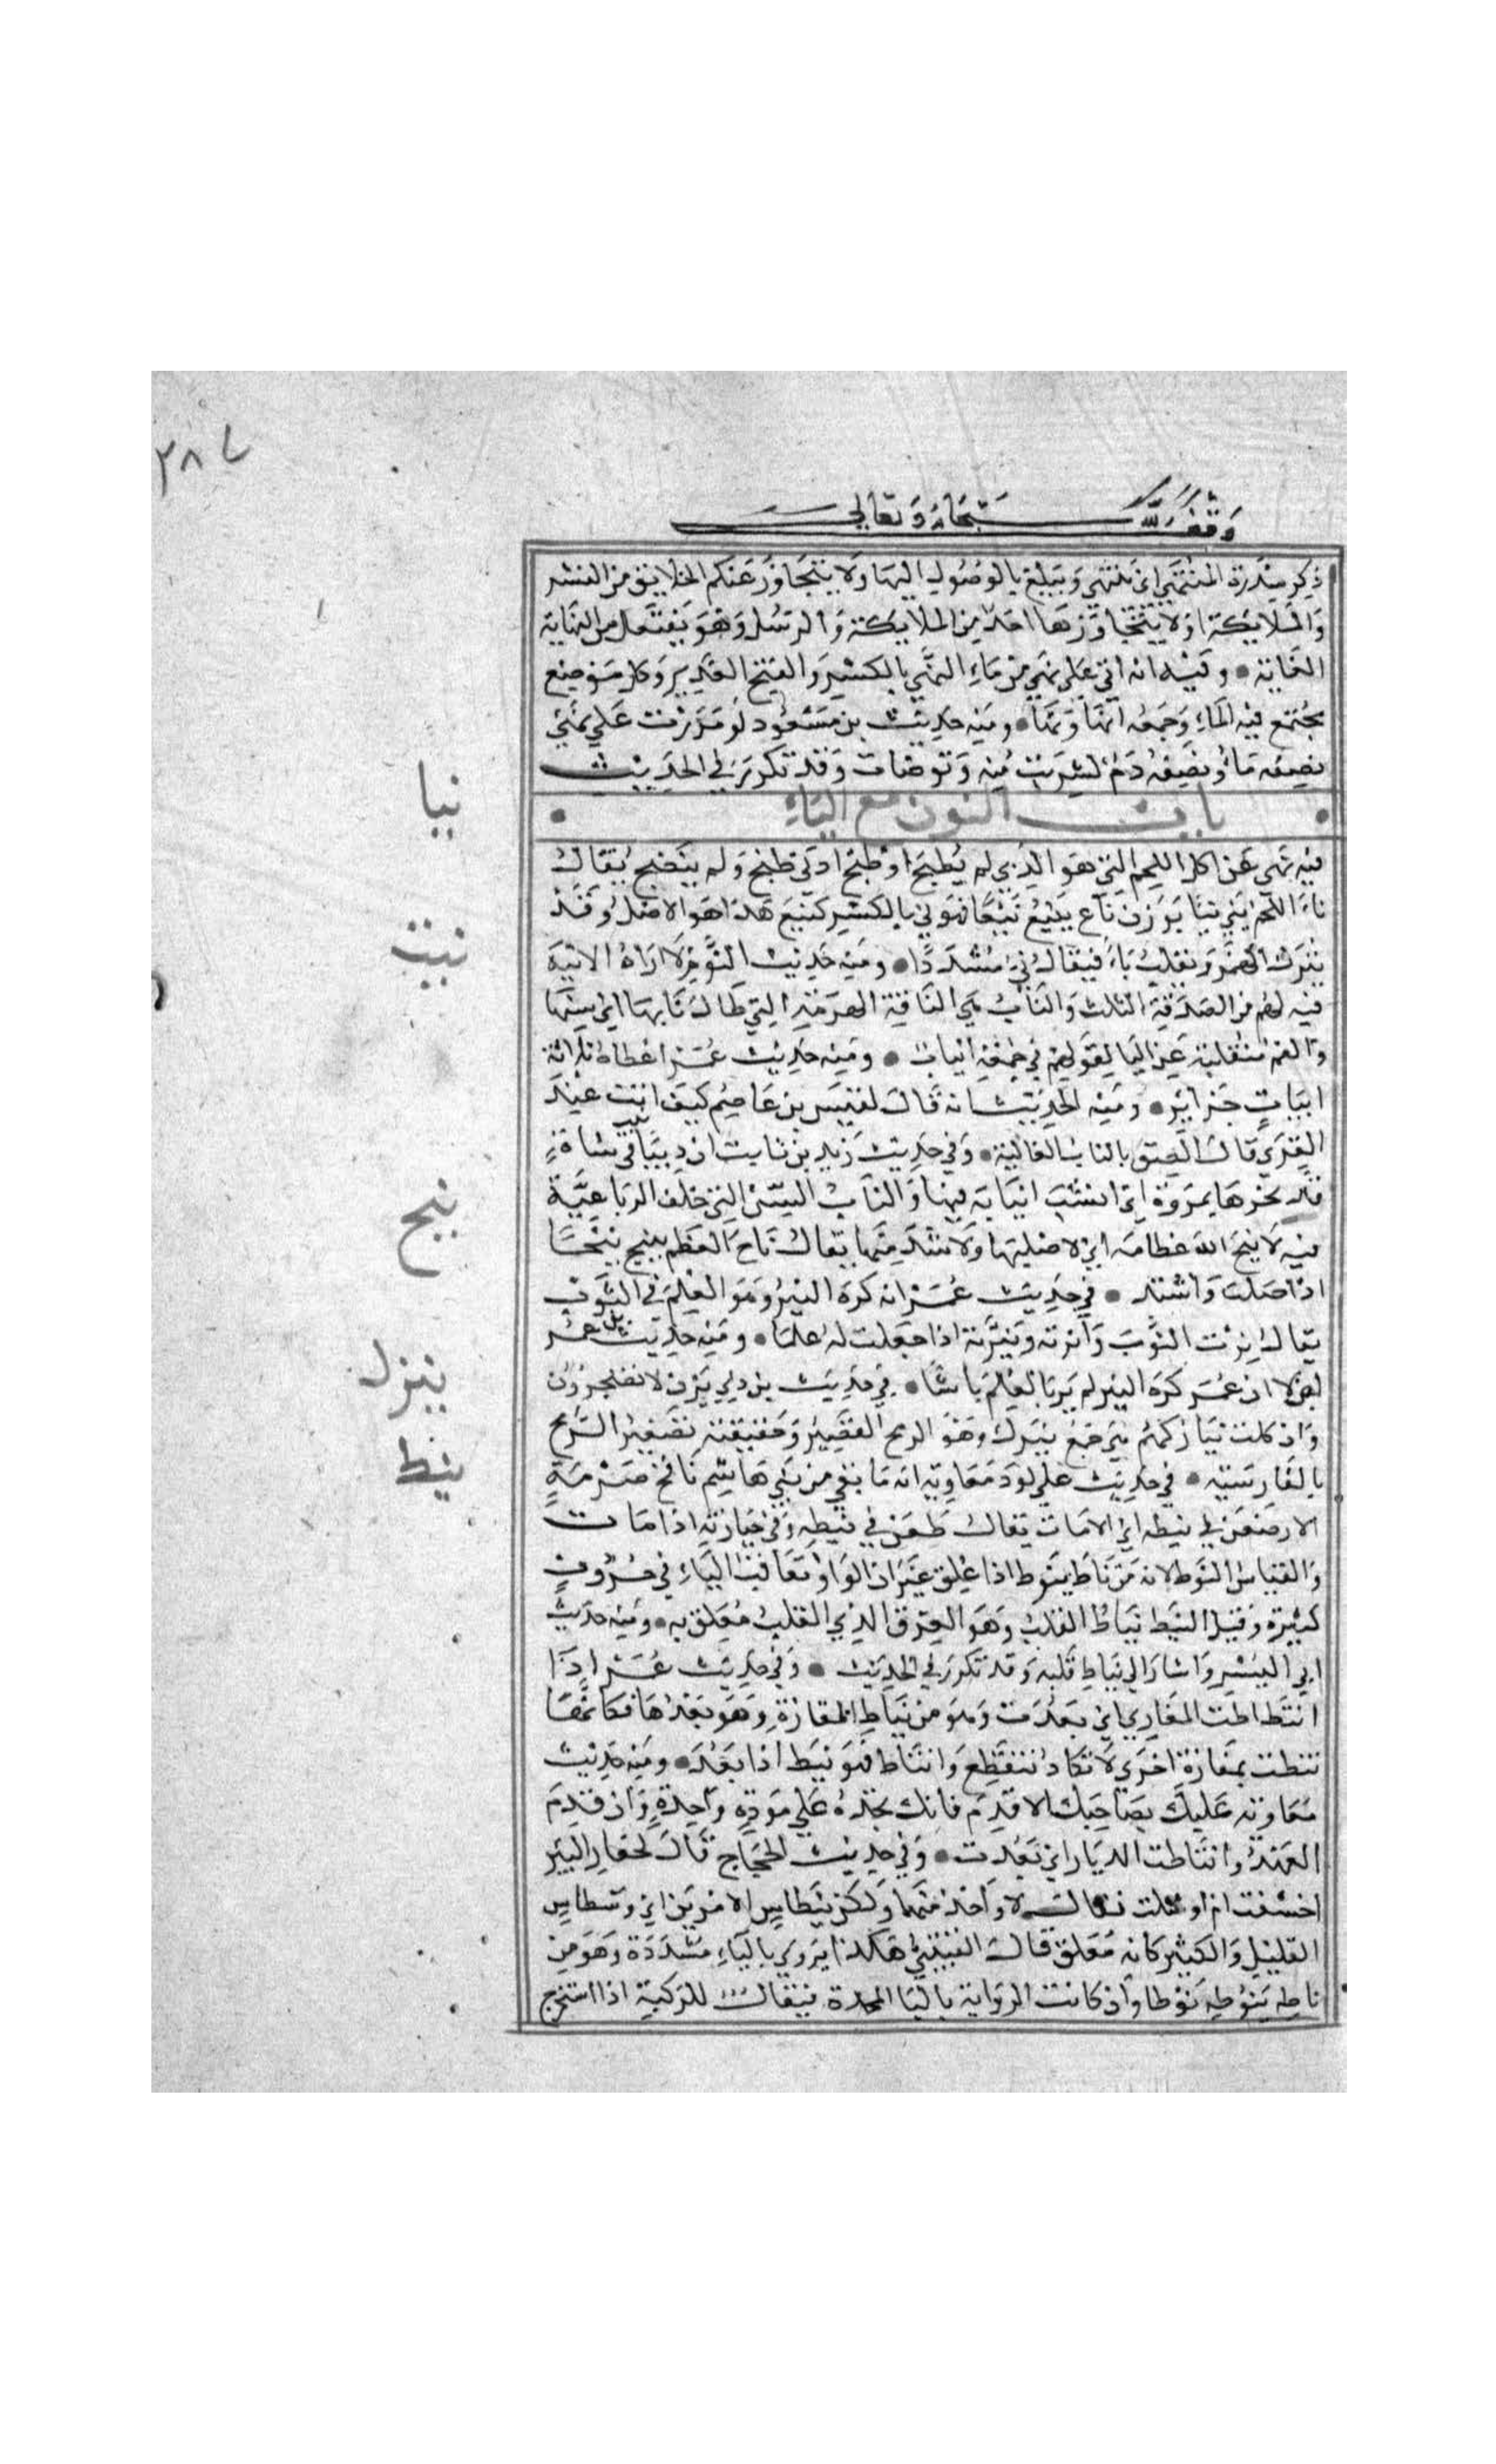 ٢٨٧
وقف لله سبحانه وتعالى
ذكر سدرة المنتهى اي ينتهي ويبلغ بالوصول اليها ولا يتجاوز عنكم الخلايق من البشر
والملايكة او لا يتجاوزها احد من الملايكة والرسل وهو يفتعل من النهاية
الغاية • وفيه انه اتى على نهي من ماء النهي بالكسر والفتح الغدير وكل موضع
يجتمع فيه الماء وجمعه انهاء ونهاء • ومنه حديث بن مسعود لو مررت على نهي
نصفه ماء ونصفه دم لشربت منه وتوضات وقد تكرر في الحديث
باب النون مع الياء
نيا
فيه نهى عن اكل اللحم الني هو الذي لم يطبخ او طبخ ادنى طبخ ولم ينضج يقال
ناء اللحم ينيء نيئا بوزن ناع ينيع نيعا فهو ني بالكسر كنيع هذا هو الاصل وقد
يترك الهمز ويقلب ياء فيقال ني مشددا • ومنه حديث الثوم لا اراه الا نيه
نيب
فيه لهم من الصدقة الثلب والناب هي الناقة الهرمة التي طال نابها اي سنها
والفه منقلبة عن اليا لقولهم في جمعه انياب • ومنه حديث عمر اعطاه ثلاثة
انياب جزاير • ومنه الحديث انه قال لقيس بن عاصم كيف انت عند
القرى قال الصق بالناب الفانية • وفي حديث زيد بن ثابت ان ذيبا نيب في شاة
فذبحوها بمروة اي انشب انيابه فيها والناب السن التي خلف الرباعية
نيح
فيه لا نيح الله عظامه اي لا صلبها ولا شد منها يقال ناح العظم ينيح نيحا
اذا صلب واشتد • في حديث عمر انه كره النير وهو العلم في الثوب
يقال نرت الثوب وانرته ونيرته اذا جعلت له علما • ومنه حديث بن عمر
لولا ان عمر كره النير لم نر بالعلم باسا • في حديث بن ذي يزن لا تضجرون
نيزك
وان كلت نيازكهم هي جمع نيزك وهو الرمح القصير وحقيقته تصغير الرمح
بالفارسية • في حديث علي لود معاوية انه ما بقي من بني هاشم نافخ ضرمة
نيط
الا طعن في نيطه اي الا مات يقال طعن في نيطه وفي جنازته اذا مات
والقياس النوط لانه من ناط ينوط اذا علق غير ان الواو تعاقب الياء في حروف
كثيرة وقيل النيط نياط القلب وهو العرق الذي القلب معلق به • ومنه حديث
ابي اليسر واشار الى نياط قلبه وقد تكرر في الحديث • وفي حديث عمر اذا
انتاطت المغازي اي بعدت وهو من نياط المفازة وهو بعدها فكانها
نيطت بمفازة اخرى لا تكاد تنقطع وانتاط فهو نيط اذا بعد • ومنه حديث
معاوية عليك بصاحبك الاقدم فانك تجده على مودة واحدة وان قدم
العهد وانتاطت الديار اي بعدت • وفي حديث الحجاج قال لحفار البير
اخسفت ام اوشلت فقال لا واحد منهما ولكن نيطا بين الامرين اي وسطا بين
القليل والكثير كانه معلق قال القتيبي هكذا يروى بالياء مشددة وهو من
ناطه ينوطه نوطا وان كانت الرواية بالبا الموحدة فيقال للركية اذا استخرج